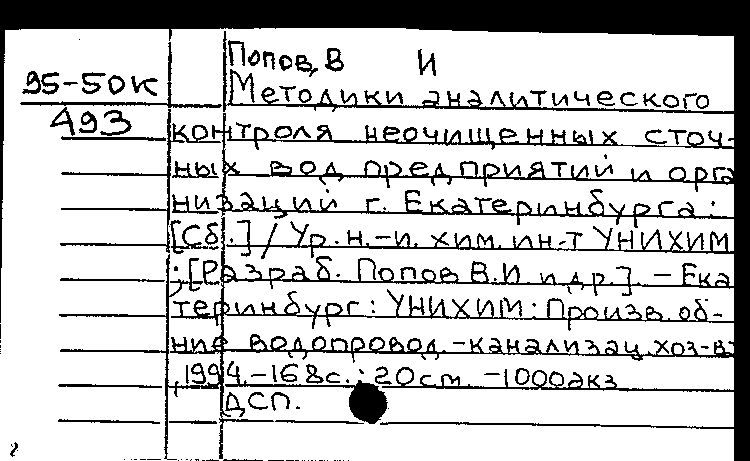 Попов, В И
95-50К
Методики аналитического
493
контроля неочищенных сточ-
ных вод предприятий и орга
низаций г. Екатеринбурга:
[Сб.] / Ур. н.-и. хим. ин-т УНИХИМ
; [Разраб. Попов В.И. и др.]. - Ека
теринбург: УНИХИМ: Произв. об-
ние водопровод.-канализац. хоз-в
, 1994. - 168с.; 20см. - 1000экз
ДСП.